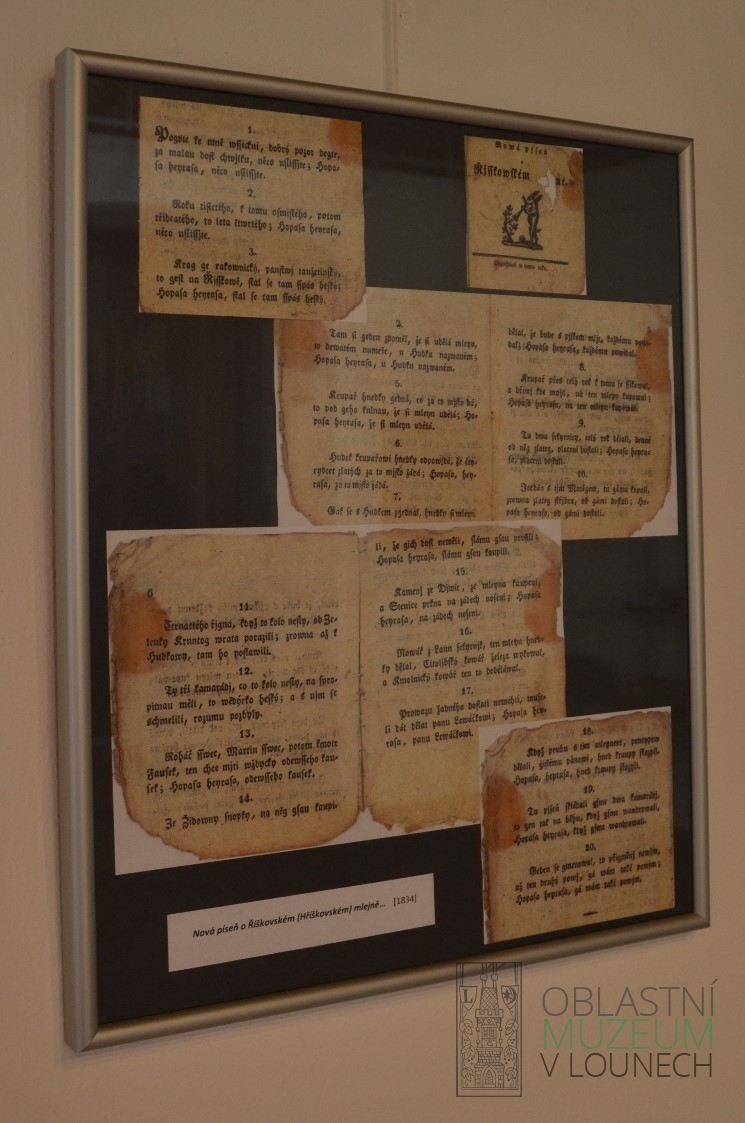 1.
Pogďte ke mně wssickni, dobrý pozor degte,
za malau dost chwjlku, něco uslissjte; Hopa-
sa heyrasa, něco uslissjte.
2.
Roku tisycého, k tomu osmistého, potom
třidcatého, to leta čtwrtého; Hopasa heyrasa,
něco uslissjte.
3.
Krag ge rakownický, panstwj taužetinský,
to gest na Rjsskowě, stal se tam sspás heský;
Hopasa heyrasa, stal se tam sspás heský.
Nowá pjseň
o
Rjsskowském
w tomto roku.
Tam si geden zpoměl, že si udělá mleyn,
w dewatém numeře, u Hudku nazwaném;
Hopasa heyrasa, u Hudku nazwaném.
5.
Krupař hnedky gedná, co za to mjsto dá,
to pod geho kulnau, že si mleyn udělá; Ho-
pasa heyrasa, že si mleyn udělá.
6.
Hudek krupařowi hnedky odpowjdá, že čty-
rydcet zlatých za to mjsto žádá; Hopasa, hey-
rasa, za to mjsto žádá.
7.
Gak se s Hudkem zgednal, hnedky si mleyn
dělal, že bude s pjskem mljt, každému powj-
dal; Hopasa heyrasa, každému powjdal.
8.
Krupař přes celý rok k tomu se ssikowal,
a dřjwj kde mohl, na ten mleyn kupowal;
Hopasa heyrasa, na ten mleyn kupowal.
9.
Tu dwa sekernjcy, celý rok dělali, denně
od něg zlatey, placenj dostali; Hopasa heyra-
sa, placenj dostali.
10.
Jordán s tjm Minýgem, tu gámu kopali,
zrowna zlateg střjbra, od gámi dostali; Ho-
pasa heyrasa, od gámi dostali.
6
11.
Čtrnactého řigna, když to kolo nesly, od Ze-
lenky Kruntog wrata porazili; zrowna až k
Hudkowy, tam ho postawili.
12.
Ty tři kamarádj, co to kolo nesly, na spro-
pitnau měli, to wždycko heský; a s njm se
schmelili, rozumu pozbyly.
13.
Roháč sswec, Martin sswec, potom kmotr
Zausek, ten chce mjti wždycky odewsseho kau-
sek; Hopasa heyrasa, odewsseho kausek.
14.
Ze Židowny snopky, na něg gsau kaupi-
li, že gich dost neměli, slámu gsau prosili;
Hopasa heyrasa, slámu gsau kaupili.
15.
Kamenj ze Djwic, ze mleyna kaupenj,
a Stenice prkna na zádech nosenj; Hopasa
heyrasa, na zádech nosenj.
16.
Nowák z Laun sekernjk, ten mleyn hned-
ky dělal, Citolibský kowář železa wykowal,
a Smolnický kowář ten to dodělával.
17.
Prowazu žadného dostati nemohli, muse-
li dát dělat panu Lewáčkowi; Hopasa hey-
rasa, panu Lewáčkowi.
18.
Když prubu s tjm mleynem, ponejprw
dělali, čistému pánowi, hned kraupy slegyli.
Hopasa, heyrasa, hned kraupy slegyli.
19.
Tu pjseň skládali gsme dwa kamarádj,
to gen tak na běhu, když gsme wandrowali,
Hopasa heyrasa, když gsme wandrowali.
20.
Geden se gmenowal, to přjgmenj newjm,
až ten druhý powj, gá wám také powjm;
Hopasa heyrasa, gá wám také powjm.
Nová píseň o Říškovském (Hříškovském) mlejně... [1834]
L
OBLASTNÍ
MUZEUM
V LOUNECH